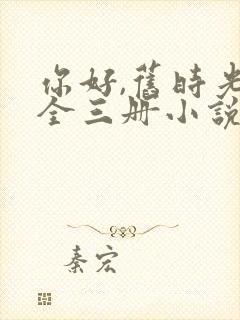 你好,舊時光
全三册小說
秦宏